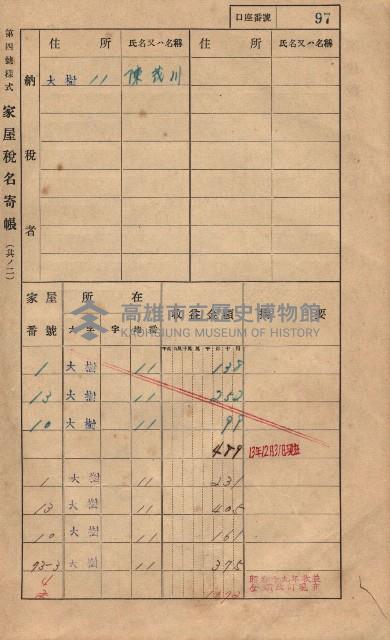 口座番號 97
第四號樣式 家屋稅名寄帳 (其ノ二)
納稅者
住所 氏名又ハ名稱 住所 氏名又ハ名稱
大樹 11 陳茂川
家屋番號 所在 收益金額 摘要
大字 字 地番
高雄市立歷史博物館
KAOHSIUNG MUSEUM OF HISTORY
1 大樹 11 138
13 大樹 11 252
10 大樹 11 99
489 13年12月31日現在
1 大樹 11 231
13 大樹 11 405
10 大樹 11 161
93-3 大樹 11 375
4